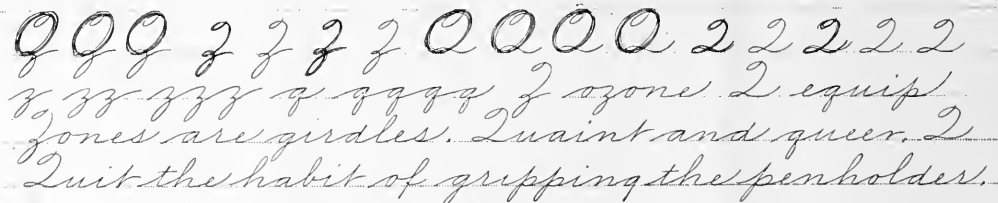 Z Z Z Z Z Z Z Q Q Q Q Q Q Q Q Q
z zz zzz q qqqq Z ozone Q equip
Zones are girdles. Quaint and queer. Q
Quit the habit of gripping the penholder.